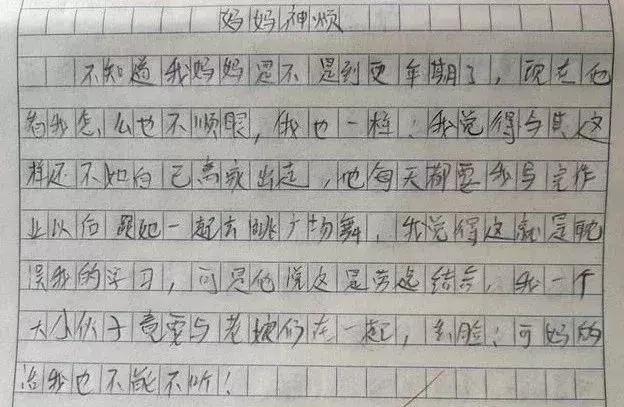 妈妈神烦
不知道我妈妈是不是到更年期了，现在他
看我怎么也不顺眼，我也一样：我觉得与其这
样还不如自己离家出走，她每天都要我写完作
业以后跟她一起去跳广场舞，我觉得这就是耽
误我的学习，可是他说这是劳逸结合，我一个
大小伙子竟要与老娘们在一起，丢脸；可妈的
话我也不能不听！